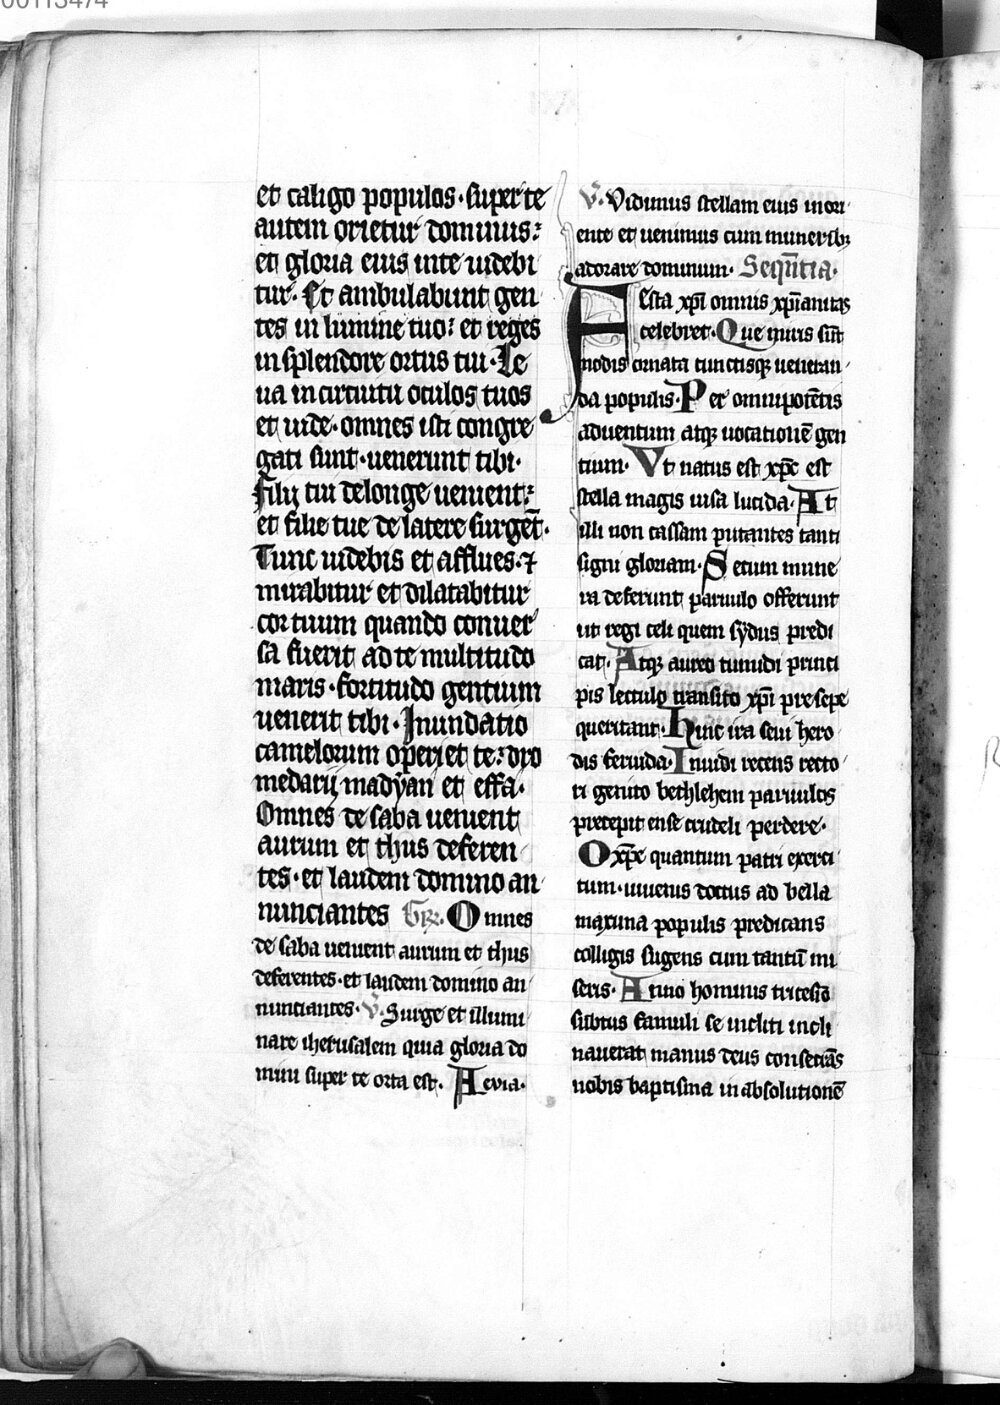 00113474
et caligo populos · super te
autem orietur dominus :
et gloria eius in te uidebi
tur · Et ambulabunt gen
tes in lumine tuo : et reges
in splendore ortus tui · Le
ua in circuitu oculos tuos
et uide · omnes isti congre
gati sunt · uenerunt tibi ·
filij tui de longe uenient :
et filie tue de latere surgēt ·
Tunc uidebis et afflues · ⁊
mirabitur et dilatabitur
cor tuum quando conuer
sa fuerit ad te multitudo
maris · fortitudo gentium
uenerit tibi · Inundatio
camelorum operiet te : dro
medarij madyan et effa ·
Omnes de saba uenient
aurum et thus deferen
tes · et laudem domino an
nunciantes Gr̄. Omnes
de saba uenient aurum et thus
deferentes · et laudem domino an
nunciantes · V̄. Surge et illumi
nare iherusalem quia gloria do
mini super te orta est. Aeuia ·
V̄. Vidimus stellam eius in ori
ente et uenimus cum munerib;
adorare dominum · Seqn̄tia ·
Festa xp̄i omnis xp̄ianitas
celebret · Que miris sūt
modis ornata cunctisq; ueneran
da populis · Per omnipotētis
aduentum atq; uocationē gen
tium · Vt natus est xp̄c est
stella magis uisa lucida · At
illi non cassam putantes tanti
signi gloriam · Secum mune
ra deferunt paruulo offerunt
ut regi celi quem sydus predi
cat · Atq; aureo tumidi princi
pis lectulo transito xp̄i presepe
queritant · Hinc ira seui hero
dis feruida · Inuidi recens recto
ri genito bethlehem paruulos
precepit ense crudeli perdere ·
O xp̄e quantum patri exerci
tum · iuuenis doctus ad bella
maxima populis predicans
colligis sugens cum tantū mi
seris · Anno hominis tricesīo
subtus famuli se incliti incli
nauerat manus deus consecrās
nobis baptisma in absolutionē